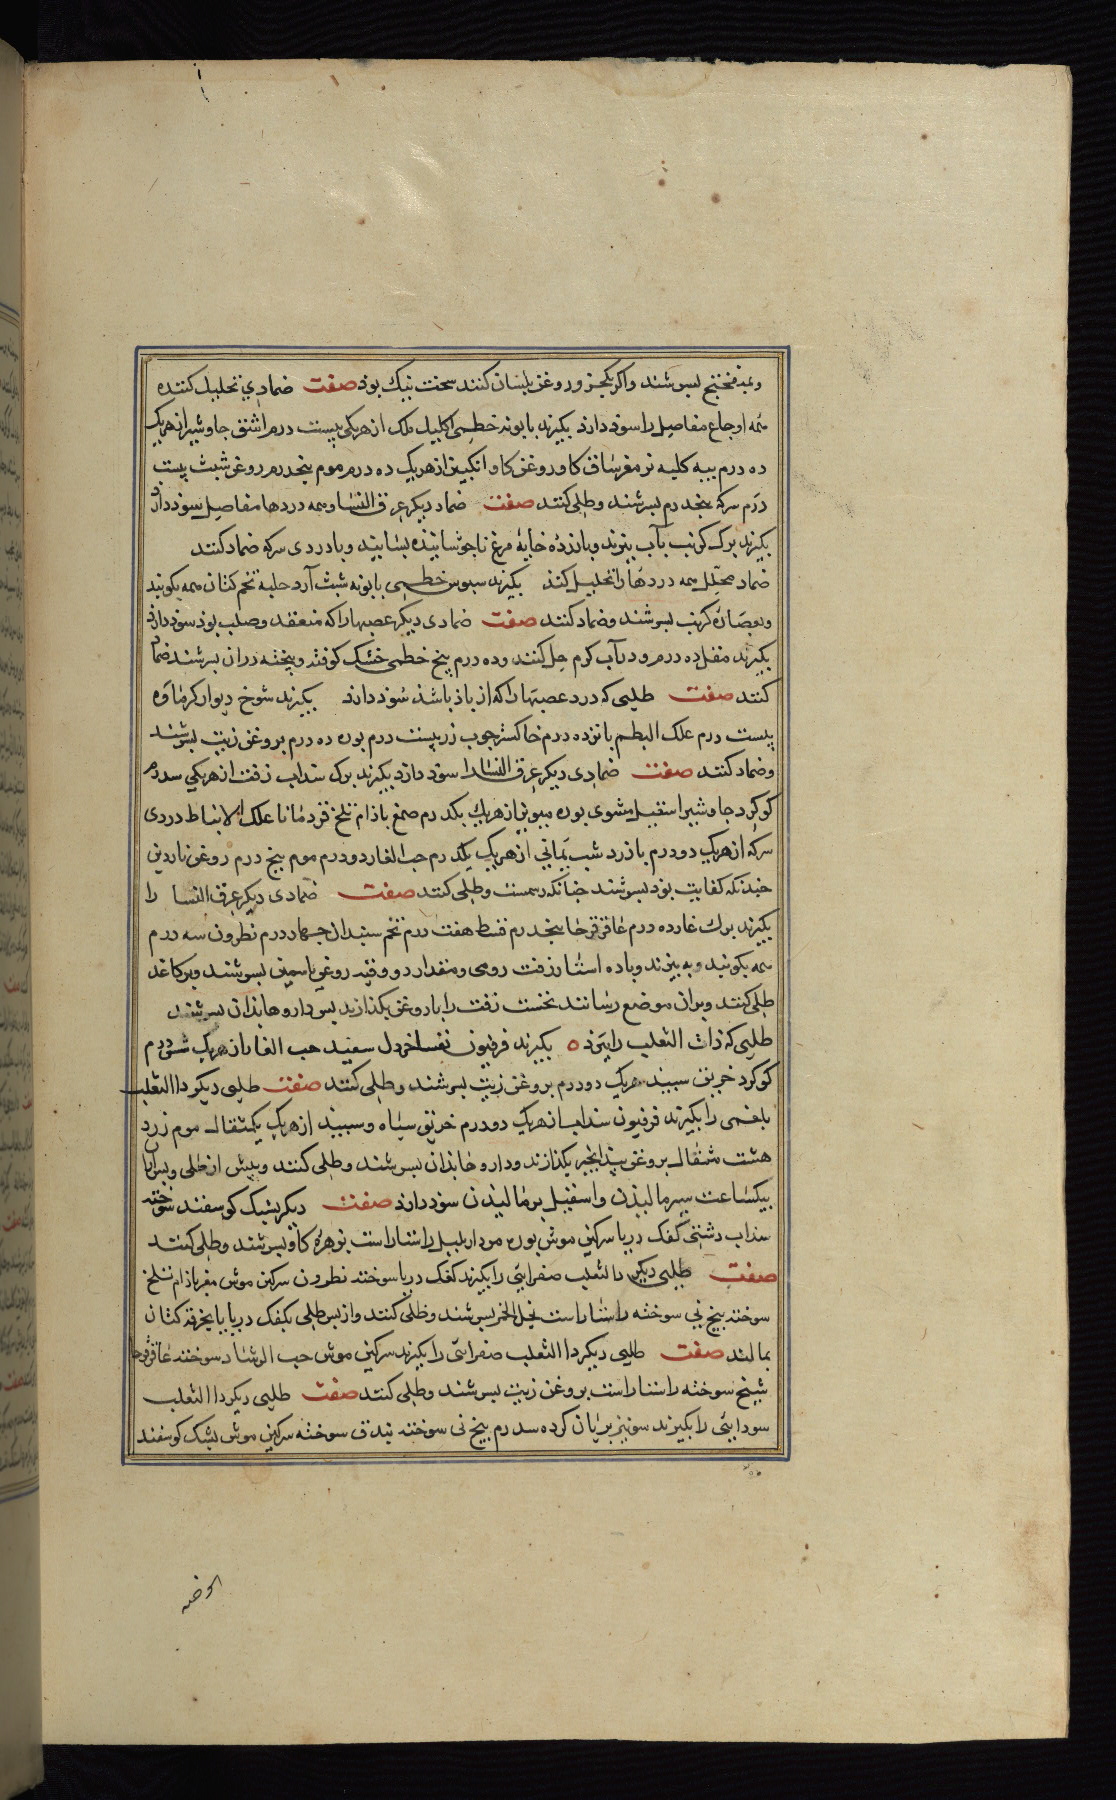 وبمیفختج بسرشند واکر یکجزو روغن بلسان کنند سخت نیک بوذ صفت ضمادی تحلیل کننده
همه اوجاع مفاصل را سوذ دارذ بکیرند بابونه خطمی اکلیل ملک از هریکی بیست درم اشق جاوشیر از هریک
ده درم پیه کلیه نر مغز ساق کاو روغن کاو انکبین از هریک ده درم موم پنجدرم روغن شبث بیست
درم سرکه پنجدرم بسرشند وطلی کنند صفت ضماد دیکر عرق النسا وهمه دردها مفاصل سوذ دارذ
بکیرند برک کرنب بآب بپزند وبا زرده خایهٔ مرغ ناجوشانیذه بسایند وبا دردی سرکه ضماد کنند
ضماد محلل همه دردها را تحلیل کنذ بکیرند سبوس خطمی بابونه شبث آرد حلبه تخم کتان همه بکوبند
وبعصارهٔ کرنب بسرشند وضماد کنند صفت ضمادی دیکر عصبها را که منعقد وصلب بوذ سوذ دارذ
بکیرند مقل ده درم ودر آب کرم حل کنند وده درم بیخ خطمی خشک کوفته وبیخته در ان بسرشند ضماد
کنند صفت طلیی که درد عصبها را که از باذ باشذ سوذ دارذ بکیرند شوخ دیوار کرماوه
بیست درم علک البطم پانزده درم خاکستر چوب رز بیست درم بوره ده درم بروغن زیت بسرشند
وضماد کنند صفت ضمادی دیکر عرق النسا را سوذ دارد بکیرند برک سذاب زفت از هریکی سدرم
کوکرد جاوشیر اسقیل مشوی بوره میویزج از هریک یکدرم صمغ باذام تلخ قردمانا علک الانباط دردی
سرکه از هریک دودرم بازرد شب یمانی از هریک یکدرم حب الغار دودرم موم پنج درم روغن ناردین
چندانکه کفایت بوذ بسرشند چنانکه رسمست وطلی کنند صفت ضمادی دیکر عرق النسا را
بکیرند برک غار ده درم عاقرقرحا پنجدرم قسط هفت درم تخم سپندان چهار درم نطرون سه درم
همه بکوبند وببیزند وباده استار زفت رومی ومقدار دو وقیه روغن یاسمین بسرشند وبرکاغذ
طلی کنند وبران موضع رسانند نخست زفت را با روغن بکذازند پس داروها بذان بسرشند
طلیی که ذات الثعلب را ببرذ ٥ بکیرند فرفیون تفسیا خردل سفید حب الغار از هریک شش درم
کوکرد خربق سپید هریک دودرم بروغن زیت بسرشند وطلی کنند صفت طلیی دیکر داالثعلب
بلغمی را بکیرند فرفیون سذاب از هریک دودرم خربق سیاه وسپیذ از هریک یکمثقال موم زرد
هشت مثقال بروغن بیدانجیر بکذازند وداروها بذان بسرشند وطلی کنند وپیش از طلی وپس از ان
بیکساعت سیر مالیذن واسقیل برمالیذن سوذ دارذ صفت دیکر پشک کوسفند سوخته
سذاب دشتی کفک دریا سرکین موش بوره مردار راستا راست بزهرهٔ کاو بسرشند وطلی کنند
صفت طلیی دیکر داالثعلب صفرایی را بکیرند کفک دریا سوخته نطرون سرکین موش مغز باذام تلخ
سوخته بیخ نی سوخته راستا راست بخل الخمر بسرشند وطلی کنند واز پس طلی بکفک دریا یا بخرقه کتان
بمالند صفت طلیی دیکر داالثعلب صفرایی را بکیرند سرکین موش حب الرشاد سوخته عاقرقرحا
شیح سوخته راستا راست بروغن زیت بسرشند وطلی کنند صفت طلیی دیکر داالثعلب
سودایی را بکیرند شونیز بریان کرده سدرم بیخ نی سوخته بندق سوخته سرکین موش پشک کوسفند